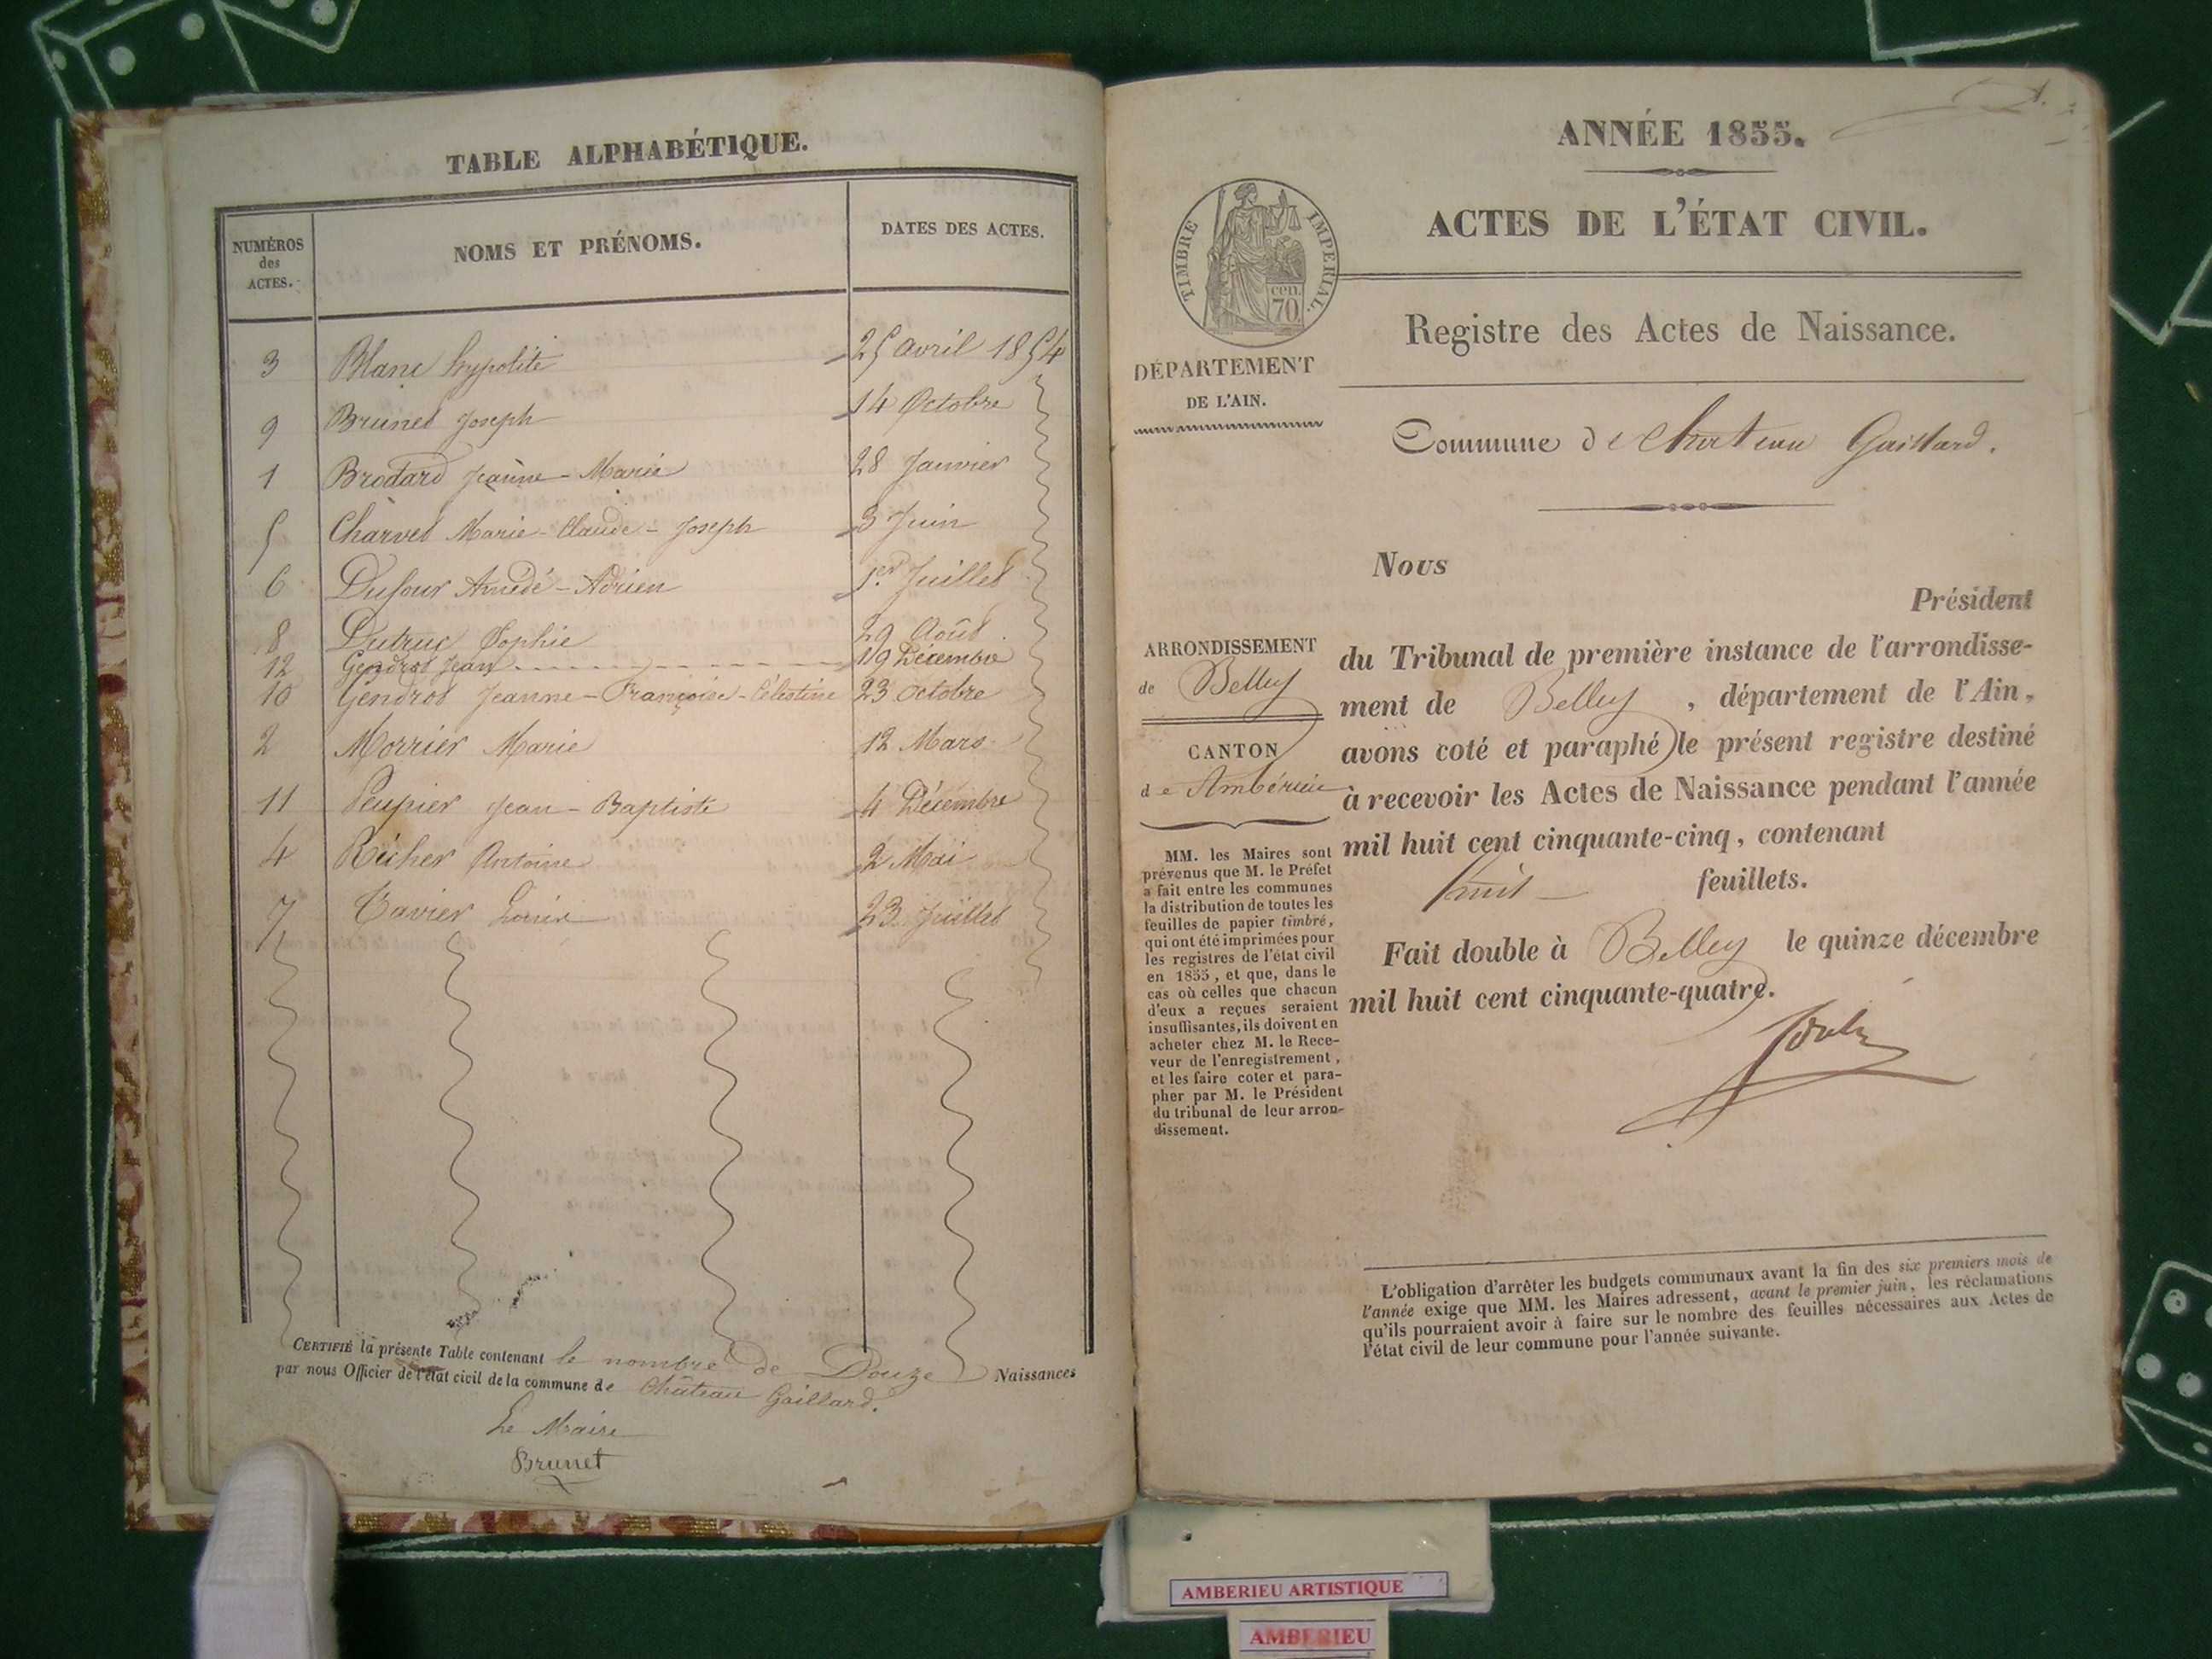 TABLE ALPHABÉTIQUE.
NUMÉROS des ACTES. NOMS ET PRÉNOMS. DATES DES ACTES.
3 Blanc hypolite 25 avril 1854
9 Brunet Joseph 14 Octobre
1 Brodard Jeanne-Marie 28 Janvier
5 Charvet Marie-Claude-Joseph 3 Juin
6 Dufour Amédé-Adrien 1er Juillet
8 Dutruc Sophie 29 Août
12 Gendrot Jean 19 Décembre
10 Gendrot Jeanne-Françoise-Célestine 23 Octobre
2 Morrier Marie 12 Mars
11 Peupier Jean-Baptiste 4 Décembre
4 Richer Antoine 2 Mai
7 Tavier 23 Juillet
CERTIFIÉ la présente Table contenant le nombre de Douze Naissances
par nous Officier de l'état civil de la commune de Château Gaillard.
Le Maire
Brunet
ANNÉE 1855.
ACTES DE L'ÉTAT CIVIL.
TIMBRE IMPERIAL.
cen.
70
Registre des Actes de Naissance.
DÉPARTEMENT
DE L'AIN.
Commune de Chateau Gaillard.
ARRONDISSEMENT
de Belley
CANTON
de Ambérieu
MM. les Maires sont
prévenus que M. le Préfet
a fait entre les communes
la distribution de toutes les
feuilles de papier timbré,
qui ont été imprimées pour
les registres de l'état civil
en 1855, et que, dans le
cas où celles que chacun
d'eux a reçues seraient
insuffisantes, ils doivent en
acheter chez M. le Rece-
veur de l'enregistrement,
et les faire coter et para-
pher par M. le Président
du tribunal de leur arron-
dissement.
Nous
Président
du Tribunal de première instance de l'arrondisse-
ment de Belley, département de l'Ain,
avons coté et paraphé le présent registre destiné
à recevoir les Actes de Naissance pendant l'année
mil huit cent cinquante-cinq, contenant
huit feuillets.
Fait double à Belley le quinze décembre
mil huit cent cinquante-quatre.
L'obligation d'arrêter les budgets communaux avant la fin des six premiers mois de
l'année exige que MM. les Maires adressent, avant le premier juin, les réclamations
qu'ils pourraient avoir à faire sur le nombre des feuilles nécessaires aux Actes de
l'état civil de leur commune pour l'année suivante.
AMBERIEU ARTISTIQUE
AMBERIEU